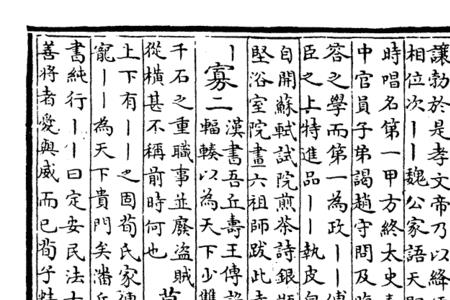 讓勃於是孝文帝乃以絳
相位次丨丨魏公家語天
時唱名第一甲方終太史
中官員子弟謁趙守問及
答之學而第一為政丨丨傅
臣之上特進品丨丨執皮
自開蘇軾試院煎茶詩銀瓶
堅浴室院畫六祖師跋此
丨寡二
漢書吾丘壽王傳
輻輳以為天下少雙
千石之重職事並廢盜賊
從橫甚不稱前時何也
上下有丨丨之固荀氏家
寵丨丨為天下貴門矣潘
書純行丨丨曰定安民法
善將者愛與威而已荀子